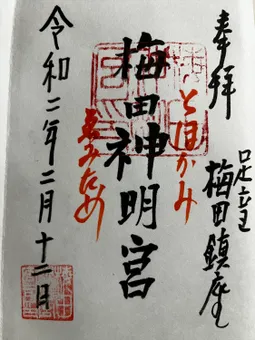 奉拝
足立
梅田鎮座
とほかみ
梅田神明宮
恵みため
令和二年二月十二日